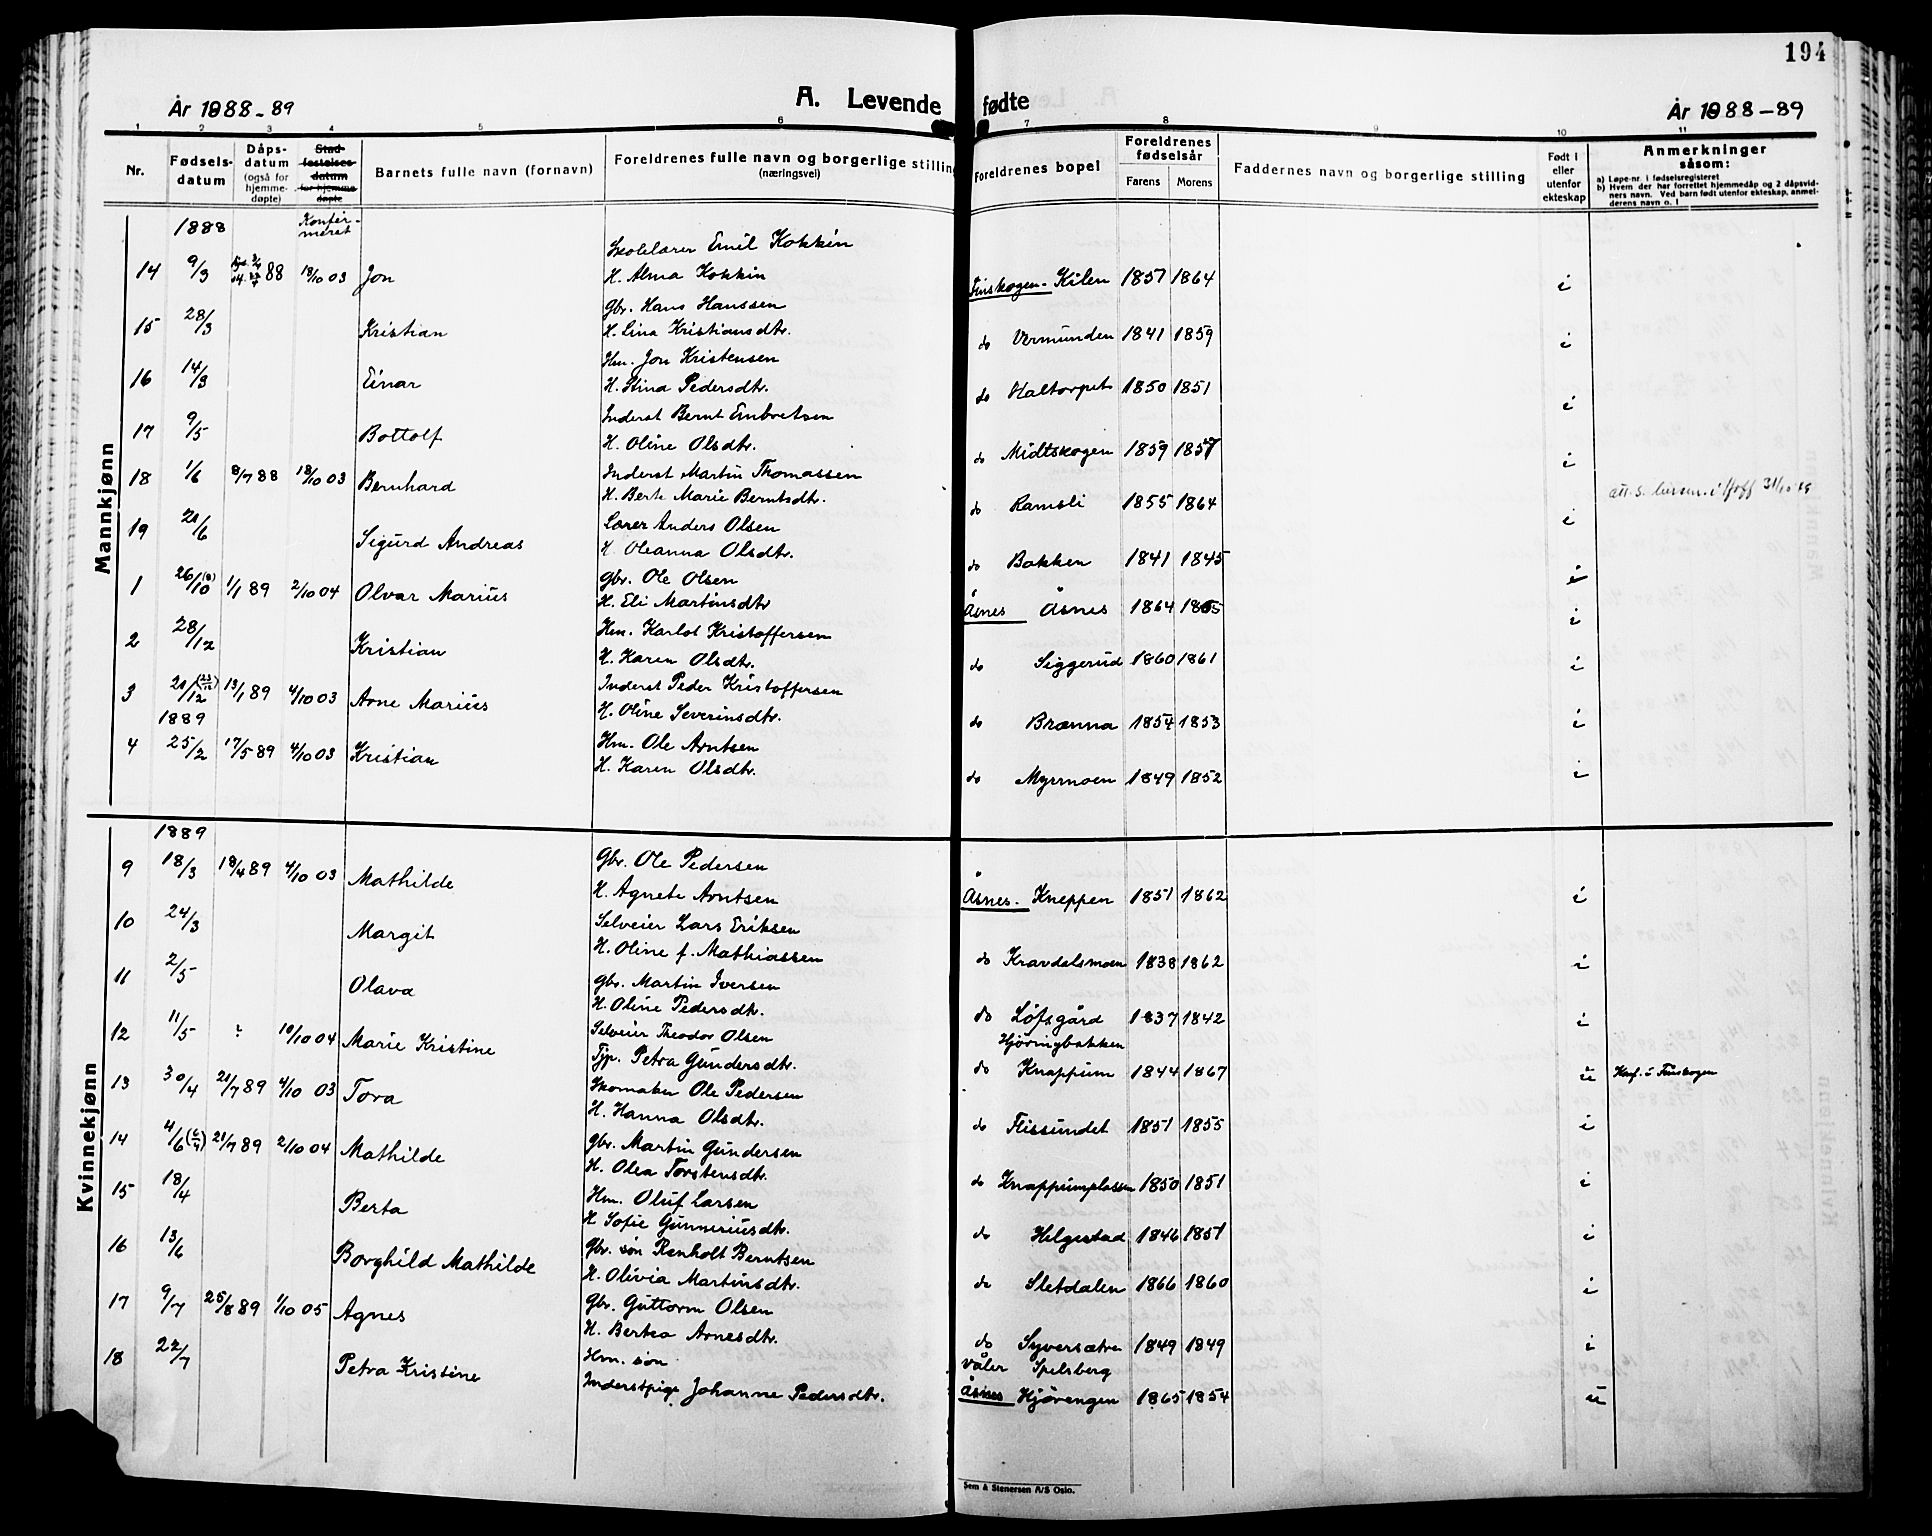 194
År 1888-89
A. Levende fødte
År 1888-89
1 2 3 4 5 6 7 8 9 10 11
Nr.
Fødsels-datum
Dåps-datum (også for hjemme-døpte)
Stad-festelses-datum for hjemme-døpte
Barnets fulle navn (fornavn)
Foreldrenes fulle navn og borgerlige stilling (næringsvei)
Foreldrenes bopel
Foreldrenes fødselsår
Farens Morens
Faddernes navn og borgerlige stilling
Født i eller utenfor ekteskap
Anmerkninger såsom:
a) Løpe-nr. i fødselsregisteret
b) Hvem der har forrettet hjemmedåp og 2 dåpsvid-
ners navn. Ved barn født utenfor ekteskap, anmel-
derens navn o. l
Mannkjønn
1888 Konfir-meret
Skolelærer Emil Kokkin
14 9/3 88 18/10 03 Jon H. Alma Kokkin Finskogen - Kilen 1857 1864 i
Gbr. Hans Hanssen
15 28/3 Kristian H. Lina Kristiansdtr. do Vermunden 1841 1859 i
Hm. Jon Kristensen
16 14/3 Einar H. Stina Pedersdtr. do Haltorpet 1850 1851 i
Inderst Bernt Embretsen
17 9/5 Bottolf H. Oline Olsdtr. do Midtskogen 1859 1857 i
Inderst Martin Thomassen
18 1/6 8/7 88 18/10 03 Bernhard H. Berte Marie Berntsdtr. do Ramsli 1855 1864 i
Lærer Anders Olsen
19 21/6 Sigurd Andreas H. Oleanna Olsdtr. do Bakken 1841 1845 i
Gbr. Ole Olsen
1 26/10 1/1 89 2/10 04 Olvar Marius H. Eli Martinsdtr Åsnes Åsnes 1864 1865 i
Hm. Karlot Kristoffersen
2 28/12 Kristian H. Karen Olsdtr. do Siggerud 1860 1861 i
Inderst Peder Kristoffersen
3 21/12 (23/12) 13/1 89 4/10 03 Arne Marius H. Oline Severinsdtr. do Brænna 1854 1853 i
1889
Hm. Ole Arntsen
4 25/2 17/5 89 4/10 03 Kristian H. Karen Olsdtr. do Myrmoen 1849 1852 i
Kvinnekjønn
1889
Gbr. Ole Pedersen
9 18/3 18/4 89 4/10 03 Mathilde H. Agnete Arntsen Åsnes - Kneppen 1851 1862 i
Selveier Lars Eriksen
10 24/3 Margit H. Oline f. Mathiassen do Kravdalsmoen 1838 1862 i
Gbr. Martin Iversen
11 2/5 Olava H. Oline Pedersdtr. do Löfsgård 1837 1842 i
Selveier Theodor Olsen Hjøringbakken
12 11/5 ? 10/10 04 Marie Kristine Tjp. Petra Gundersdtr. do Knappum 1844 1867 u Konf. i Finskogen
Skomaker Ole Pedersen
13 30/4 21/7 89 4/10 03 Tora H. Hanna Olsdtr. do Flissundet 1851 1855 i
Gbr. Martin Gundersen
14 4/6 21/7 89 2/10 04 Mathilde H. Olea Torstensdtr. do Knappumplassen 1850 1851 i
Hm. Oluf Larsen
15 18/4 Berta H Sofie Gunneriusdtr. do Helgestad 1846 1851 i
Gbr. søn Renholt Berntsen
16 13/6 Borghild Mathilde H. Olivia Martinsdtr. do Sletdalen 1866 1860 i
Gbr. Guttorm Olsen
17 9/7 25/8 89 1/10 05 Agnes H. Bertea Arnesdtr. do Syversætre 1849 1849 i
Hm. søn Våler Spelsberg
18 22/7 Petra Kristine Inderstpige Johanne Pedersdtr. Åsnes Hjørengen 1865 1854 u
Sem & Stenersen A/S Oslo.